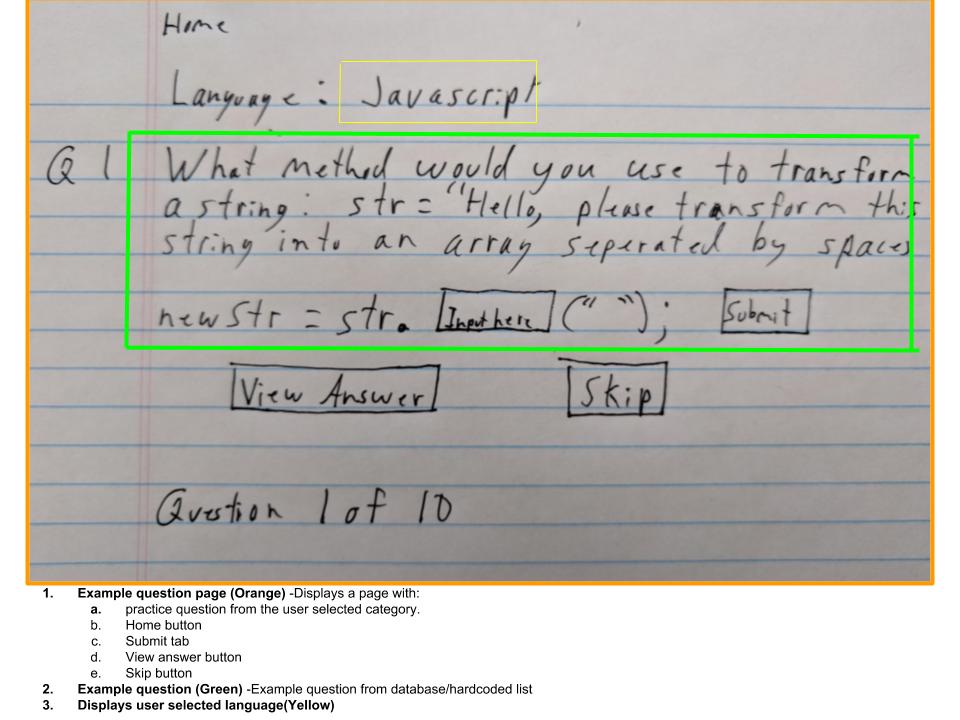 Home
Language: Javascript
Q1 What method would you use to transform
a string: str = "Hello, please transform this
string into an array seperated by spaces
newStr = str. Input here (" "); Submit
View Answer Skip
Question 1 of 10
1. Example question page (Orange) -Displays a page with:
a. practice question from the user selected category.
b. Home button
c. Submit tab
d. View answer button
e. Skip button
2. Example question (Green) -Example question from database/hardcoded list
3. Displays user selected language(Yellow)